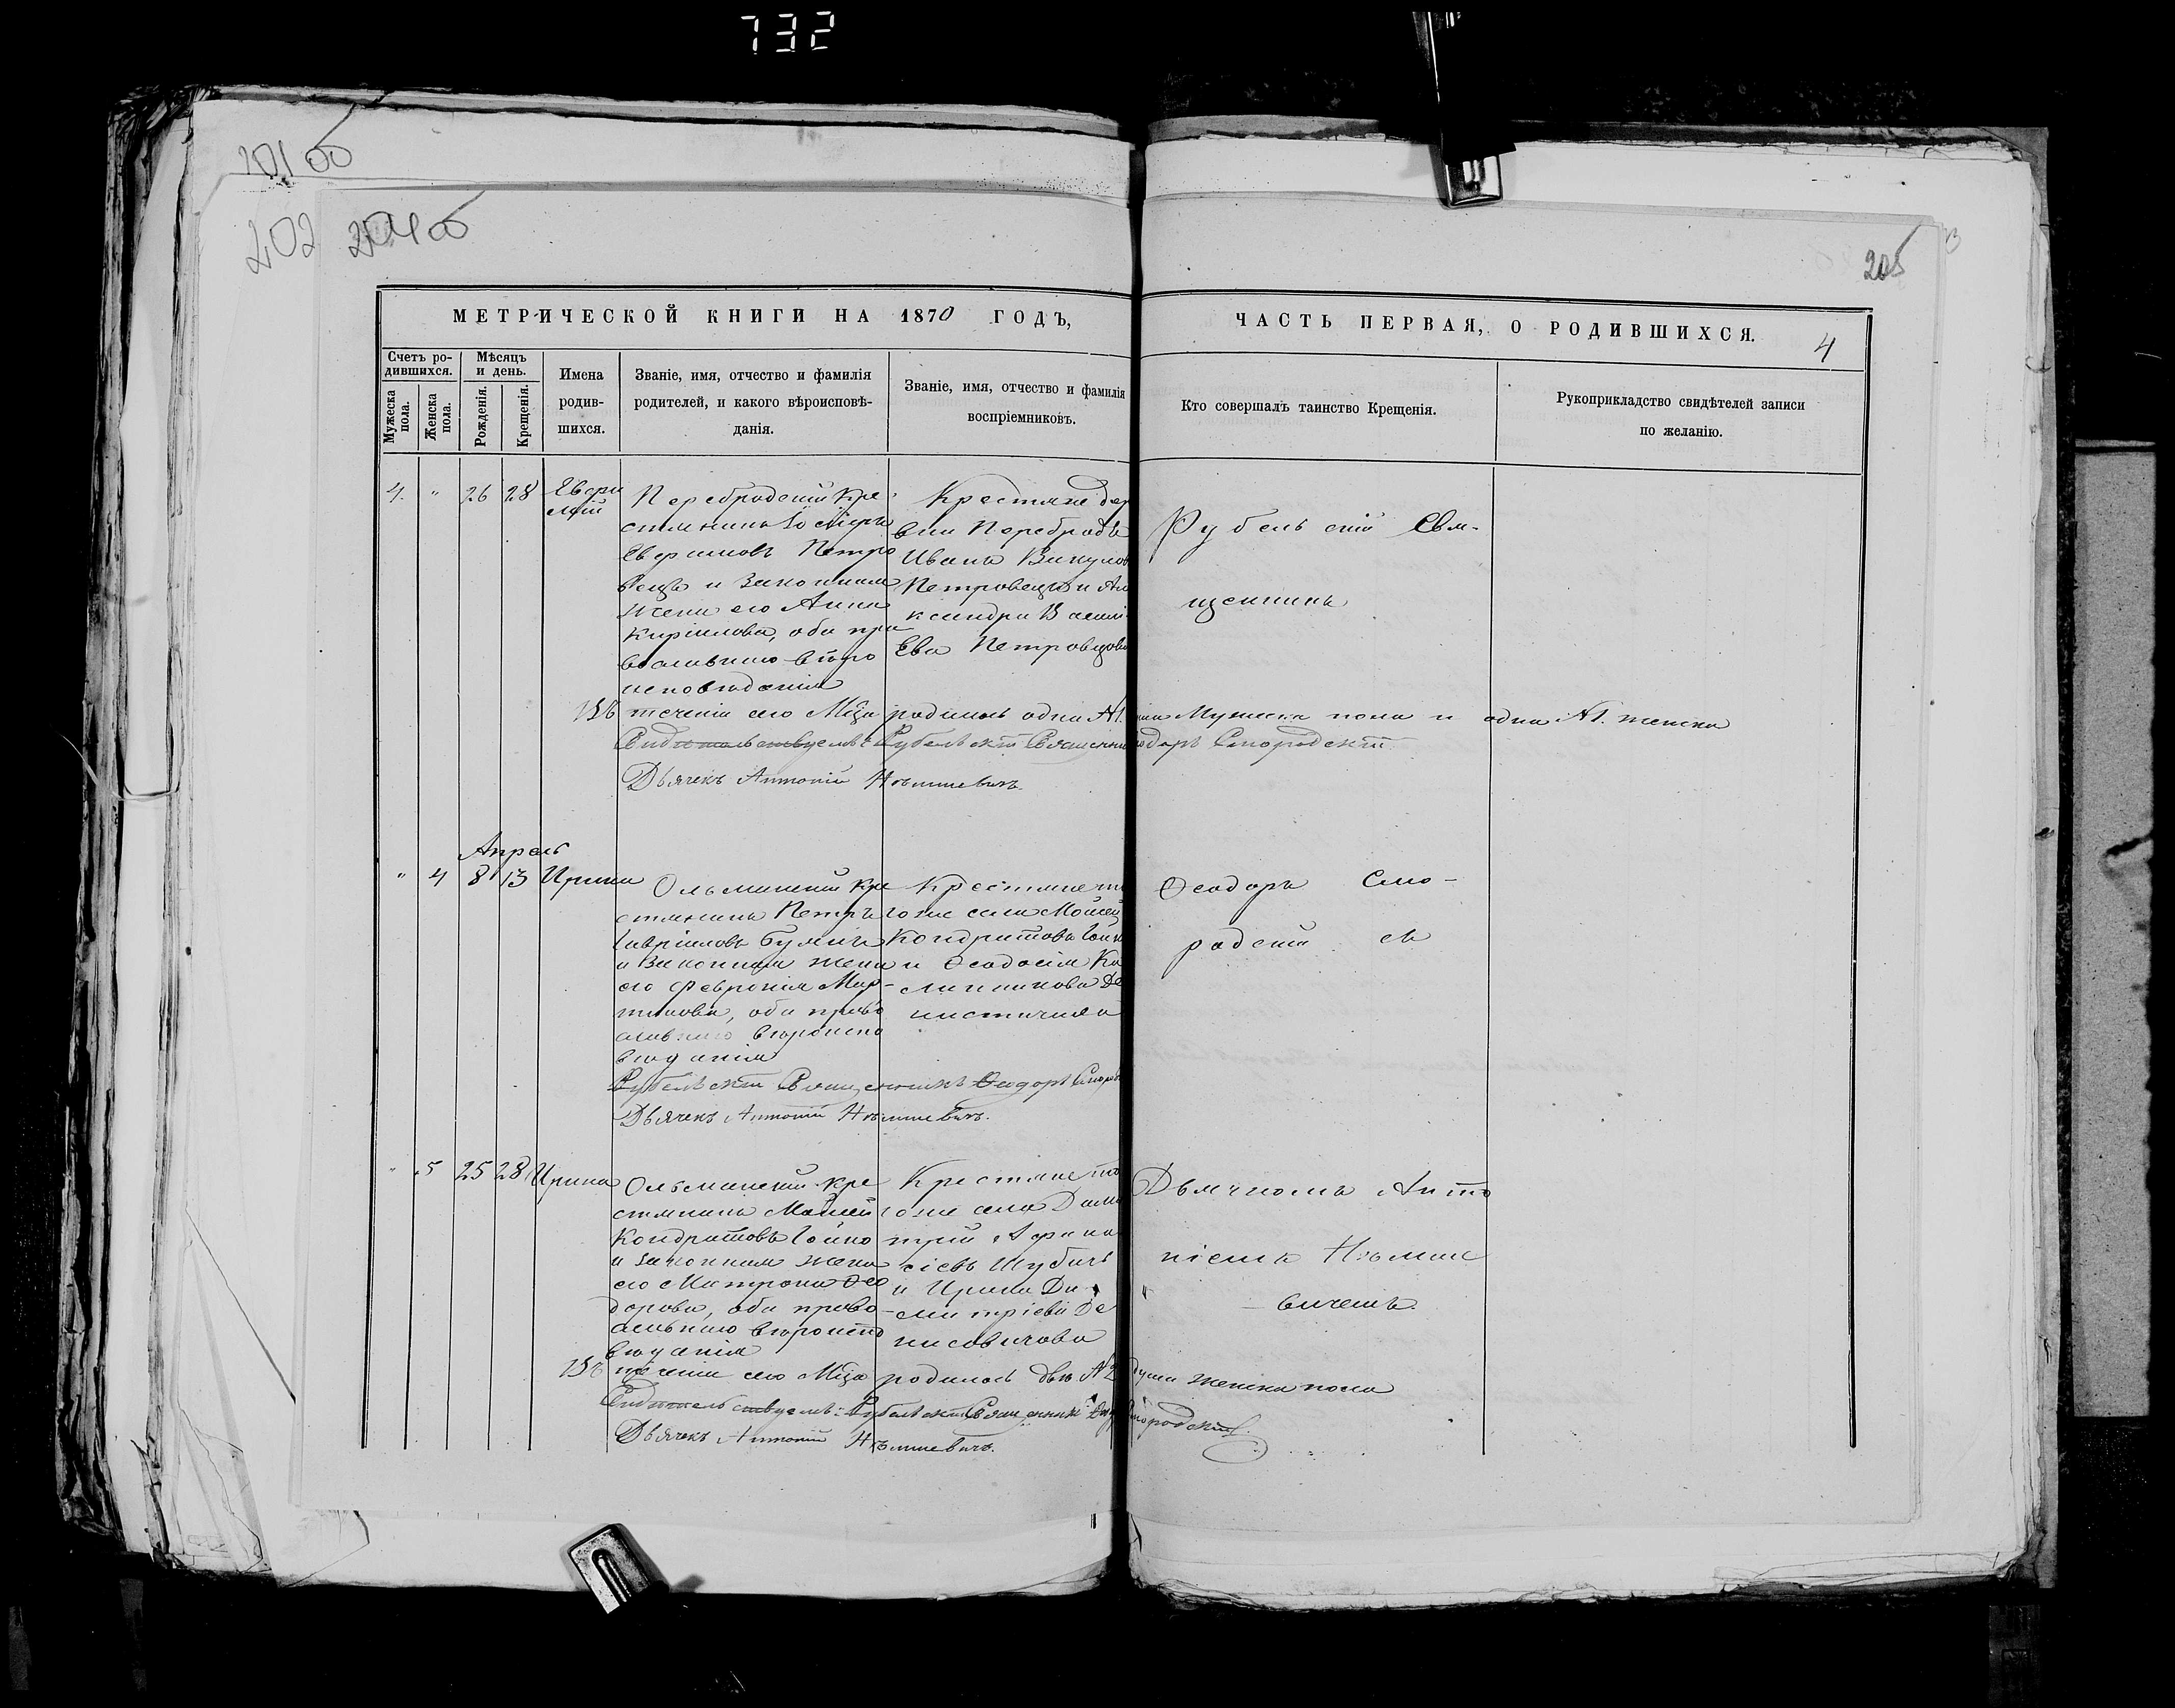 732
201 об
202 204 об
205
МЕТРИЧЕСКОЙ КНИГИ НА 1870 ГОДЪ,
ЧАСТЬ ПЕРВАЯ, О РОДИВШИХСЯ.
4
Счетъ ро-
дившихся.
Мужеска пола.
Женска пола.
Мѣсяцъ
и день.
Рожденія.
Крещенія.
Имена
родив-
шихся.
Званіе, имя, отчество и фамилія
родителей, и какого вѣроисповѣ-
данія.
Званіе, имя, отчество и фамилія
воспріемниковъ.
Кто совершалъ таинство Крещенія.
Рукоприкладство свидѣтелей записи
по желанію.
4. " 26 28
Перебродскій кре-
стьянинъ
Петро
вецъ и Законная
жена его Анна
Кириллова, оба пра
вославнаго вѣро
исповѣданія
Крестьяне дер
вни Перебродъ
Иванъ Викулов
Петровецъ и Але
ксандра Васили
Ева Петровцова
Рубельскій Свя-
щенникъ
Въ теченіи сего Мѣца родилось одна №1. Мужеска пола и одна №1. женска
Рубельскій Священникъ Смородскій
Дьячекъ Антоній Нѣмшевичъ
Апрель
" 4 8 13 Ирина
Ольманскій кре
стьянинъ Петръ
Гавріиловъ
и Законная жена
его Февронія Мар-
тинова, оба право
славнаго вѣроиспо
вѣданія
Крестьяне то
гоже села Моисей
Кондратовъ
и Ѳеодосія
Ѳеодоръ Смо-
родскій съ
Рубельскій Священникъ Ѳеодоръ Смород
Дьячекъ Антоній Нѣмшевичъ.
" 5 25 28 Ирина
Ольманскій кре
стьянинъ Моисей
Кондратовъ
и законная жена
его Матрона Ѳео
дорова, оба право-
славнаго вѣроиспо
вѣданія
Крестьяне то
гоже села Дими
трій Афана
сіевъ Шубичъ
и Ирина Ди-
митріева Де
нисовичова
Дьячкомъ Анто
ніемъ Нѣмше
вичемъ.
Въ теченіи сего Мѣца родилось двѣ №2 души женска пола
Рубельскій Священникъ Смородскій
Дьячекъ Антоній Нѣмшевичъ.